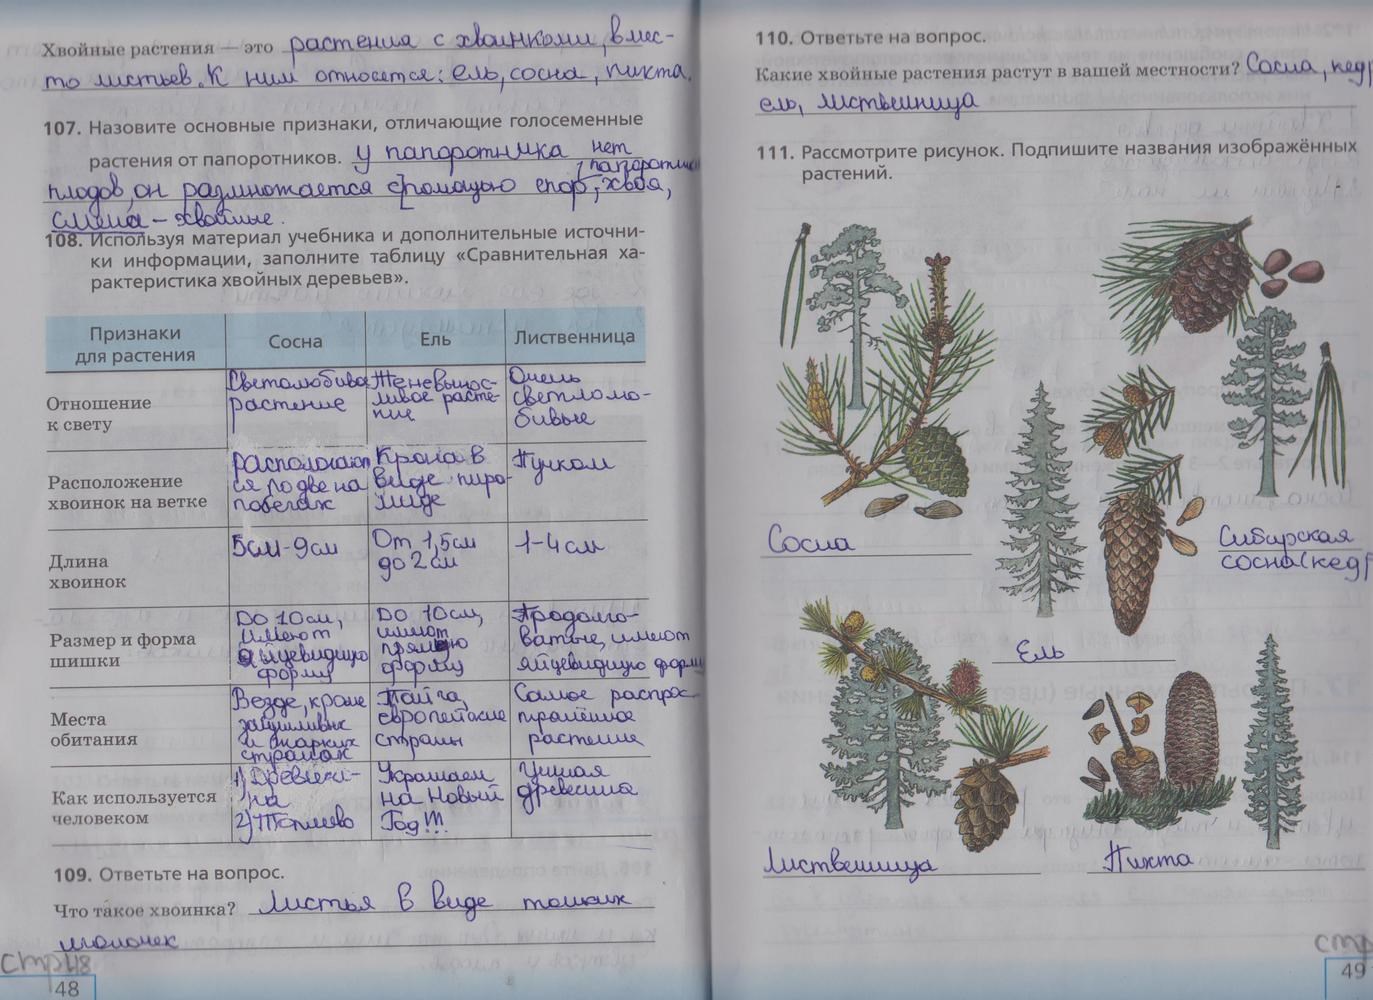 Хвойные растения — это растения с хвоинками, вмес-
то листьев. К ним относятся: ель, сосна, пихта.
107. Назовите основные признаки, отличающие голосеменные
растения от папоротников. У папоротника нет
плодов, он размножается с помощью спор,
папоротник
хвоя,
семена - хвойные.
108. Используя материал учебника и дополнительные источни-
ки информации, заполните таблицу «Сравнительная ха-
рактеристика хвойных деревьев».
Признаки
для растения
Сосна
Ель
Лиственница
Отношение
к свету
Светолюбивое
растение
Теневынос-
ливое расте-
ние
Очень
светлолю-
бивые
Расположение
хвоинок на ветке
Располагают
ся по две на
побегах
Крона в
виде пира-
миде
Пучком
Длина
хвоинок
5см-9см
От 1,5см
до 2 см
1-4 см
Размер и форма
шишки
До 10см,
имеют
яйцевидную
форму
До 10см,
имеют
прямую
форму
Продолго-
ватые, имеют
яйцевидную форму
Места
обитания
Везде, кроме
засушливых
и жарких
странах
Тайга,
европейские
страны
Самое распрос-
транённое
растение
Как используется
человеком
1) Древеси-
на
2) Топливо
Украшаем
на Новый
Год!!!
Ценная
древесина
109. Ответьте на вопрос.
Что такое хвоинка? Листья в виде тонких
иголочек
стр 48
48
110. Ответьте на вопрос.
Какие хвойные растения растут в вашей местности? Сосна, кедр
ель, лиственница
111. Рассмотрите рисунок. Подпишите названия изображённых
растений.
Сосна
Сибирская
сосна (кедр
Ель
Лиственница
Пихта
стр
49